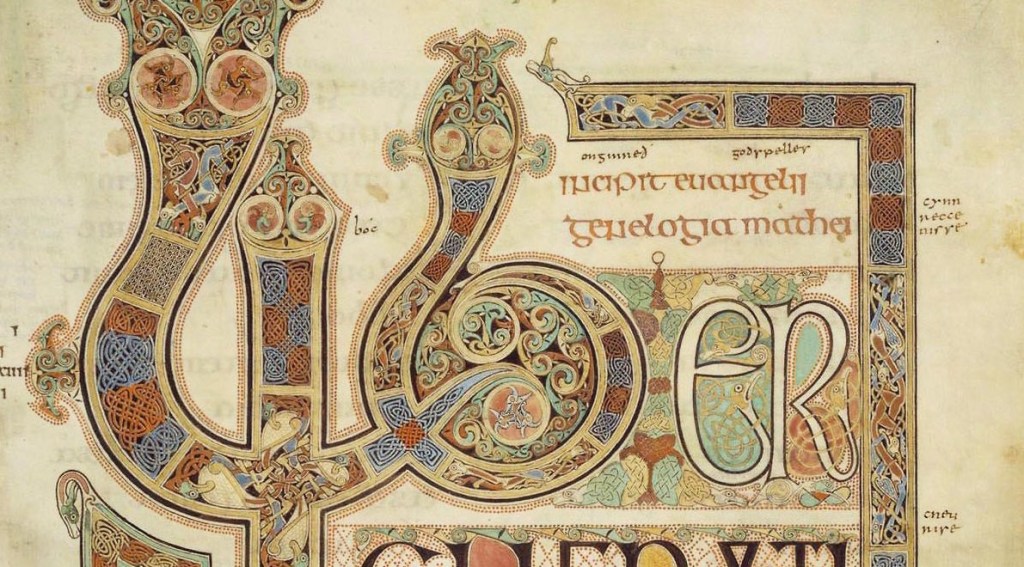 onginneð godspelles
incipit euangelii
genelogia mathei
boc
cynn
recce
nisse
Liber